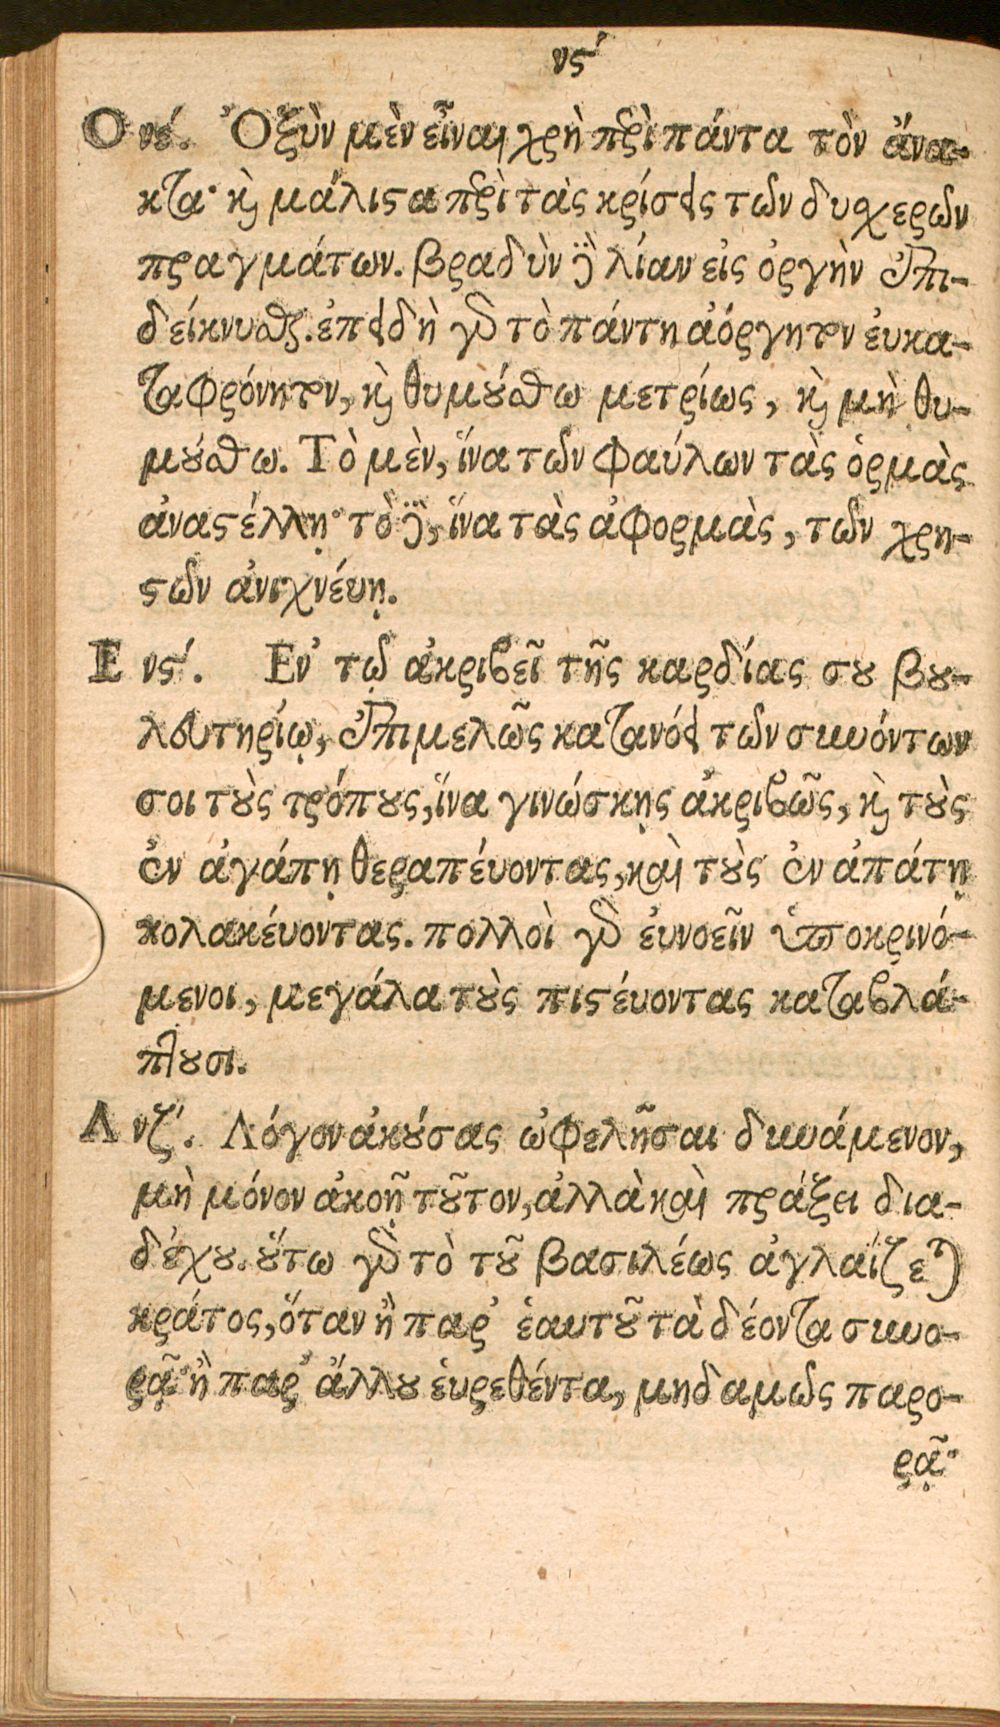 νϛʹ
Ο νέ. Ὀξὺν μὲν εἶναι χρὴ περὶ πάντα τὸν ἄνα-
κτα· καὶ μάλιστα περὶ τὰς κρίσεις τῶν δυχερῶν
πραγμάτων. βραδὺν δὲ λίαν εἰς ὀργὴν ἐπι-
δείκνυσθαι. ἐπειδὴ γὰρ τὸ πάντη ἀόργητον ἐυκα-
ταφρόνητον, καὶ θυμούσθω μετρίως, καὶ μὴ θυ-
μούσθω. Τὸ μὲν, ἵνα τῶν φαύλων τὰς ὁρμὰς
ἀναστέλλῃ· τὸ δὲ, ἵνα τὰς ἀφορμὰς, τῶν χρη-
στῶν ἀνιχνέυῃ.
Ε νϛʹ. Εν τῷ ἀκριβεῖ τῆς καρδίας σου βου-
λευτηρίῳ, ἐπιμελῶς κατανόει τῶν συνόντων
σοι τοὺς τρόπους, ἵνα γινώσκῃς ἀκριβῶς, καὶ τοὺς
ἐν ἀγάπῃ θεραπέυοντας, καὶ τοὺς ἐν ἀπάτῃ
κολακέυοντας. πολλοὶ γὰρ ἐυνοεῖν ὑποκρινό-
μενοι, μεγάλα τοὺς πιστέυοντας καταβλά-
πτουσι.
Λ νζʹ. Λόγον ἀκούσας ὠφελῆσαι δυνάμενον,
μὴ μόνον ἀκοῇ τοῦτον, ἀλλὰ καὶ πράξει δια-
δέχου. οὕτω γὰρ τὸ τοῦ βασιλέως ἀγλαΐζεται
κράτος, ὅταν ἢ παρ' ἑαυτοῦ τὰ δέοντα συνο-
ρᾷ· ἢ παρ' ἄλλου ἑυρεθέντα, μηδαμῶς παρο-
ρᾷ·